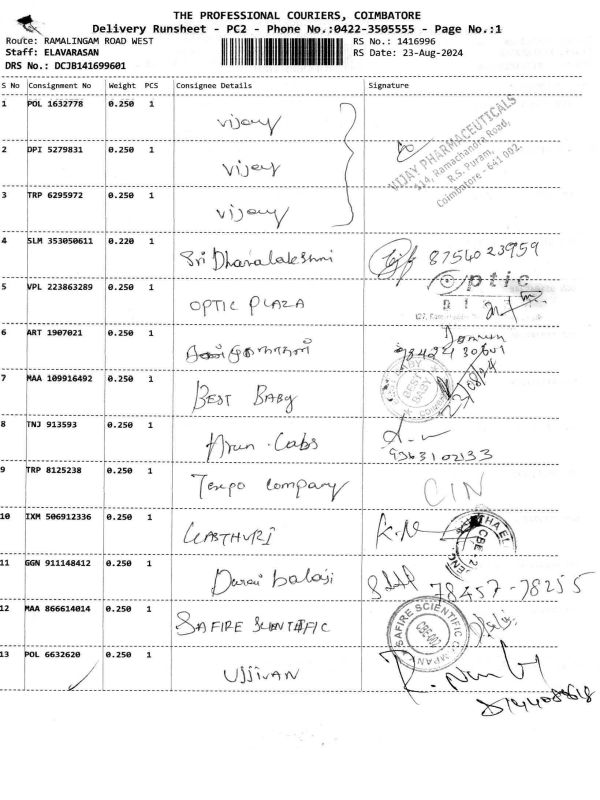 THE PROFESSIONAL COURIERS, COIMBATORE
Delivery Runsheet - PC2 - Phone No.:0422-3505555 - Page No.:1
Route: RAMALINGAM ROAD WEST RS No.: 1416996
Staff: ELAVARASAN RS Date: 23-Aug-2024
DRS No.: DCJB141699601
S No Consignment No Weight PCS Consignee Details Signature
1 POL 1632778 0.250 1 Vijay
VIJAY PHARMACEUTICALS
114, Ramachandra Road,
R.S. Puram,
Coimbatore - 641 002.
2 DPI 5279831 0.250 1 Vijay
3 TRP 6295972 0.250 1 Vijay
4 SLM 353050611 0.220 1 Sri Dhanalakshmi 8754023959
5 VPL 223863289 0.250 1 OPTIC PLAZA
Optic
6 ART 1907021 0.250 1
7 MAA 109916492 0.250 1 BEST BABY
BEST BABY
8 TNJ 913593 0.250 1 Arun Labs
9363102133
9 TRP 8125238 0.250 1 Tempo Company CIN
10 IXM 506912336 0.250 1 KASTHURI
11 GGN 911148412 0.250 1 Durai balaji 78457-78255
12 MAA 866614014 0.250 1 SAFIRE SCIENTIFIC
SAFIRE SCIENTIFIC COMPANY
13 POL 6632620 0.250 1 UJJIVAN